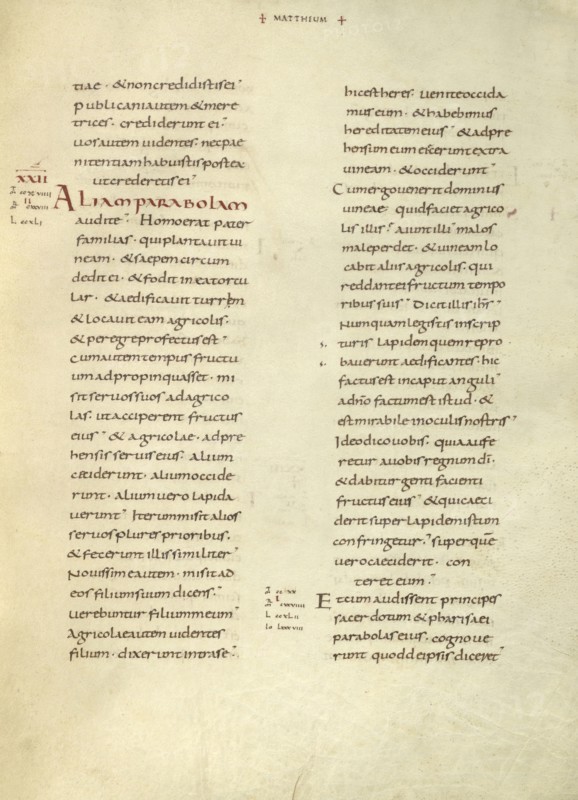 + MATTHEUM +
tiae · & non credidistis ei
publicani autem & mere
trices · crediderunt ei ·
uos autem uidentes · nec pae
nitentiam habuistis postea
ut crederetis ei
XXII
ALIAM PARABOLAM
audite · Homo erat pater
familias · qui plantauit ui
neam · & saepem circum
dedit ei · & fodit in ea torcu
lar · & aedificauit turrem
& locauit eam agricolis ·
& peregre profectus est
Cum autem tempus fructu
um adpropinquasset · mi
sit seruos suos ad agrico
las · ut acciperent fructus
eius & agricolae · adpre
hensis seruis eius · alium
ceciderunt · alium occide
runt · alium uero lapida
uerunt Iterum misit alios
seruos plures prioribus ·
& fecerunt illis similiter
Nouissime autem · misit ad
eos filium suum dicens ·
uerebuntur filium meum
Agricolae autem uidentes
filium · dixerunt intra se ·
hic est heres · uenite occida
mus eum · & habebimus
hereditatem eius & adpre
hensum eum eiecerunt extra
uineam · & occiderunt
Cum ergo uenerit dominus
uineae · quid faciet agrico
lis illis · aiunt illi malos
male perdet · & uineam lo
cabit aliis agricolis · qui
reddant ei fructum tempo
ribus suis Dicit illis ihs
Numquam legistis in scrip
turis Lapidem quem repro
bauerunt aedificantes · hic
factus est in caput anguli
a dno factum est istud · &
est mirabile in oculis nostris
Ideo dico uobis · quia aufe
retur a uobis regnum di ·
& dabitur genti facienti
fructus eius & qui ceci
derit super lapidem istum
confringetur · super quē
uero ceciderit · con
teret eum ·
L ccxLii
Et cum audissent principes
sacerdotum & pharisaei
parabolas eius · cognoue
runt quod de ipsis diceret